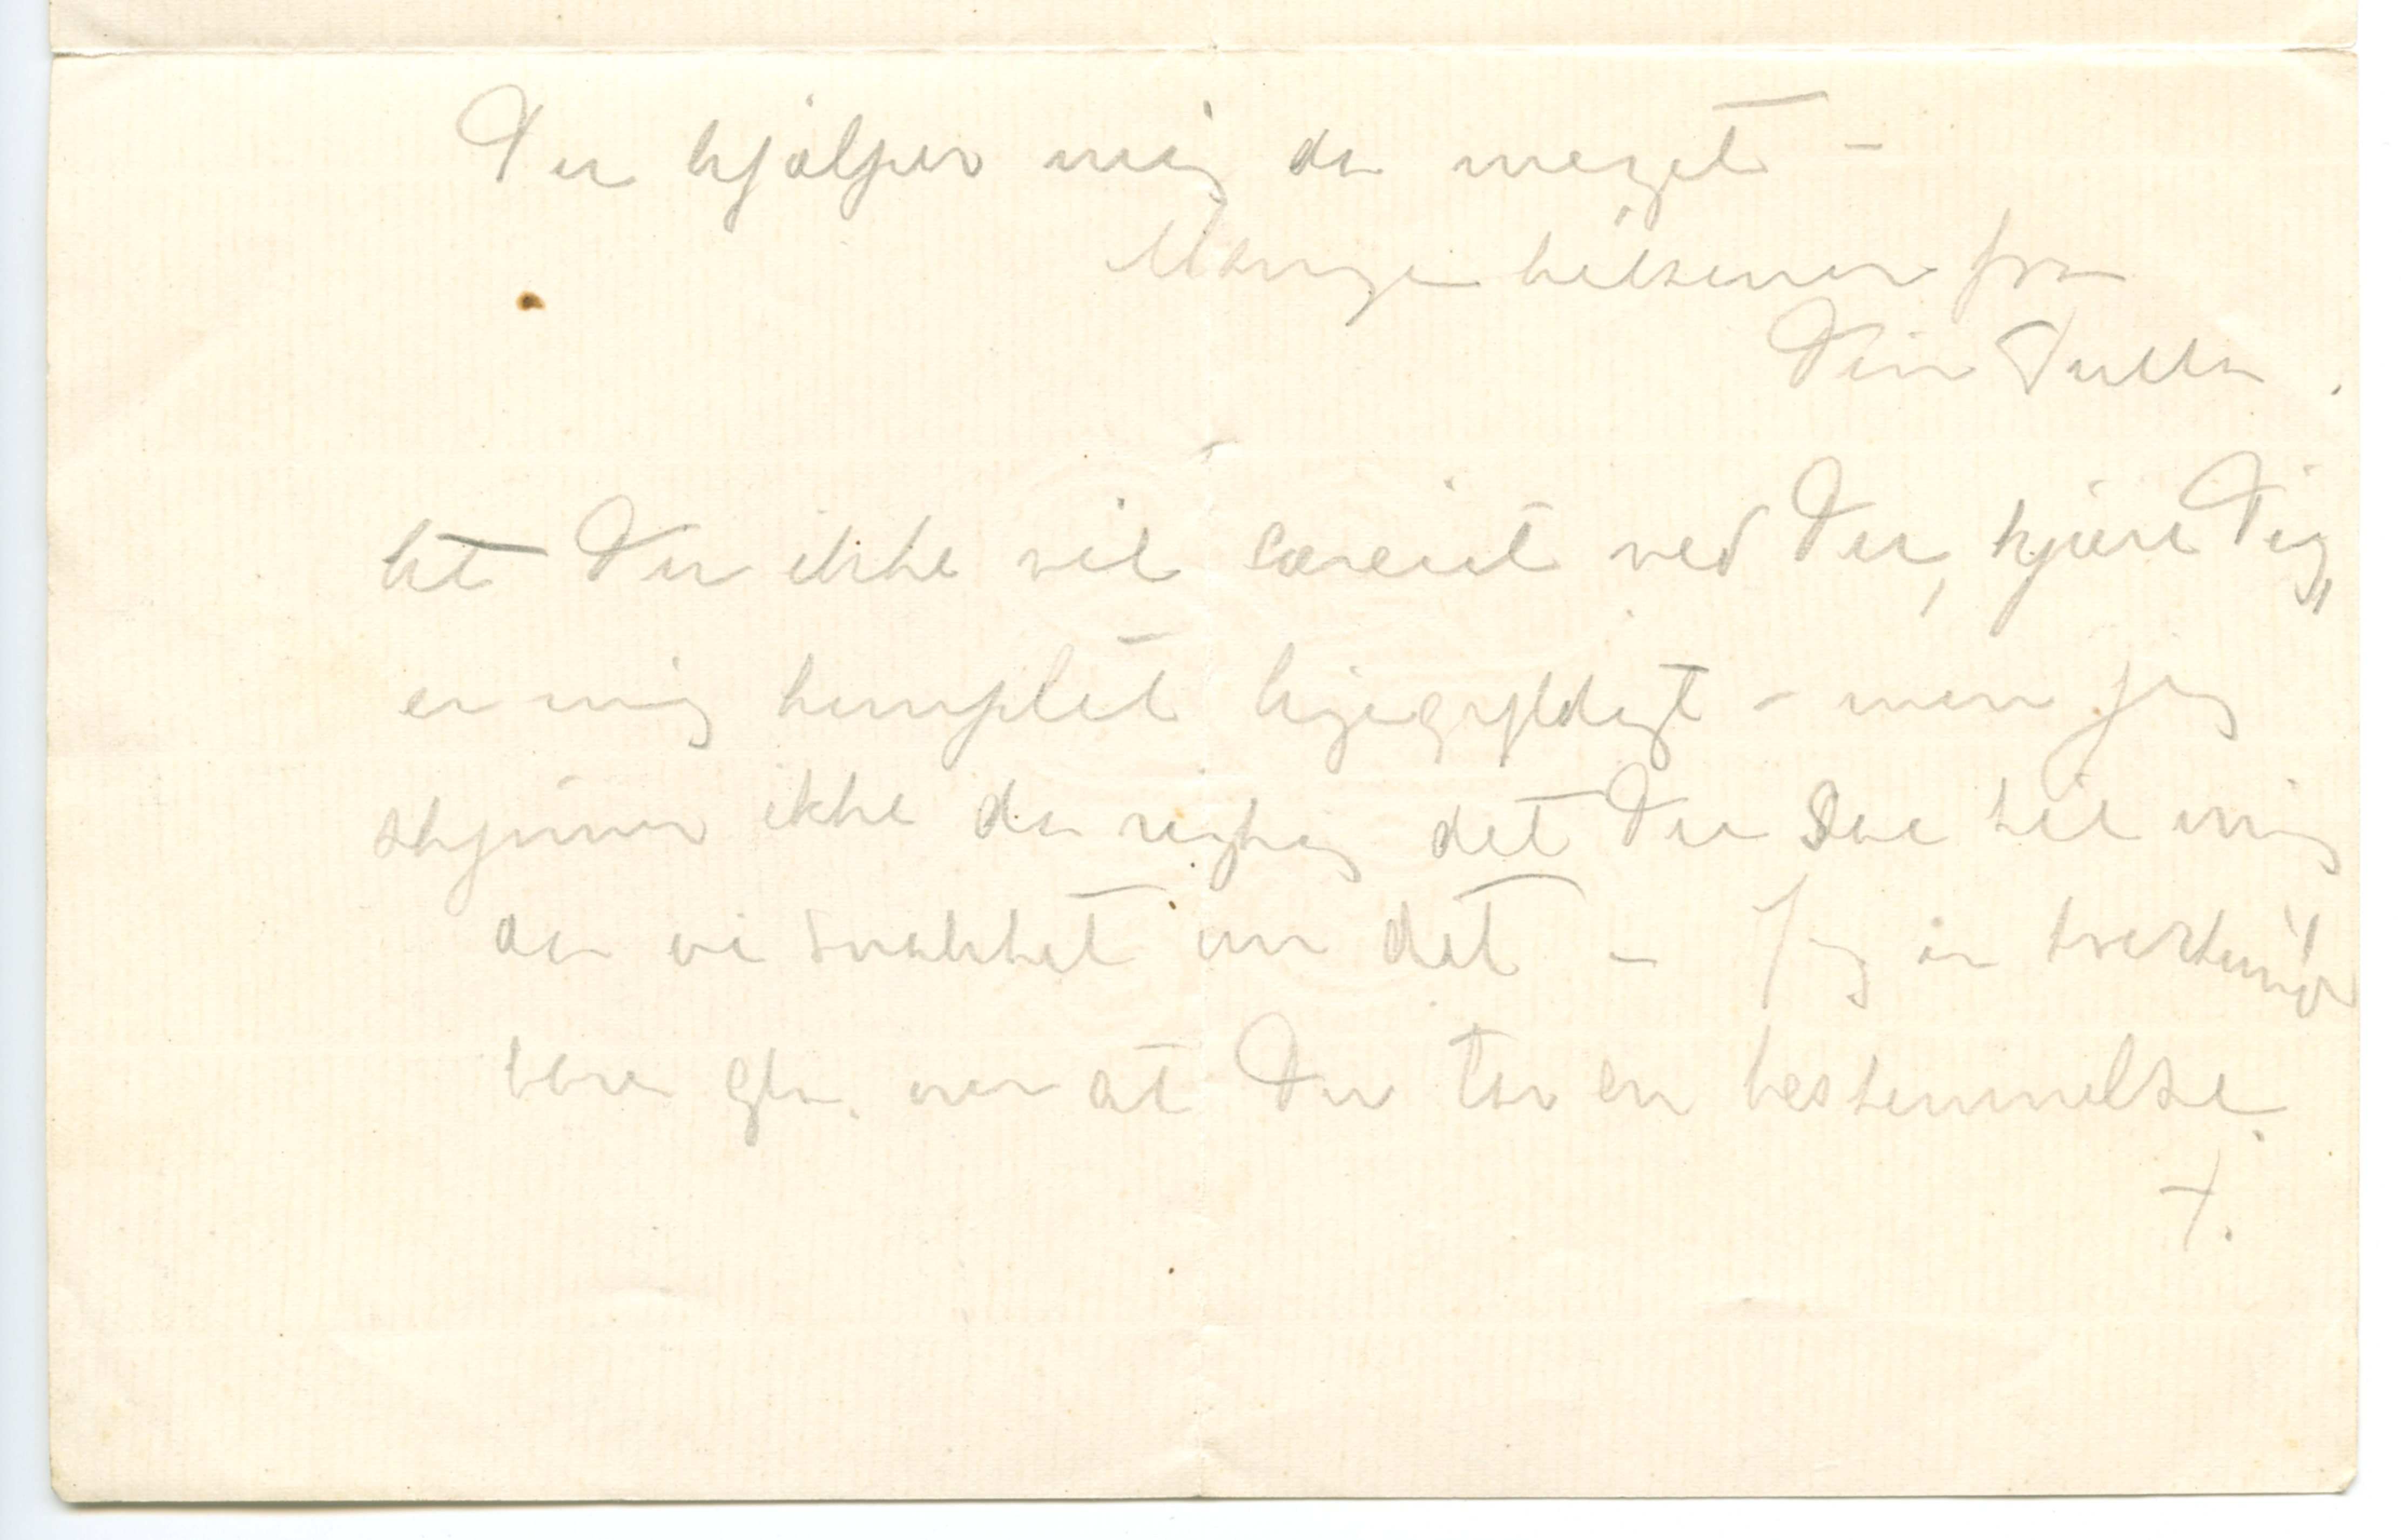 Du hjælper mig da meget –
Mange hilsener fra
Din Tulla.
At Du ikke vil særeiet ved Du, kjære Dig,
er mig komplet ligegyldigt – men jeg
skjønner ikke da rigtig det Du sae til mig
da vi snakket om det – Jeg er tvertimod
bare gla. over at Du tar en bestemmelse.
T.